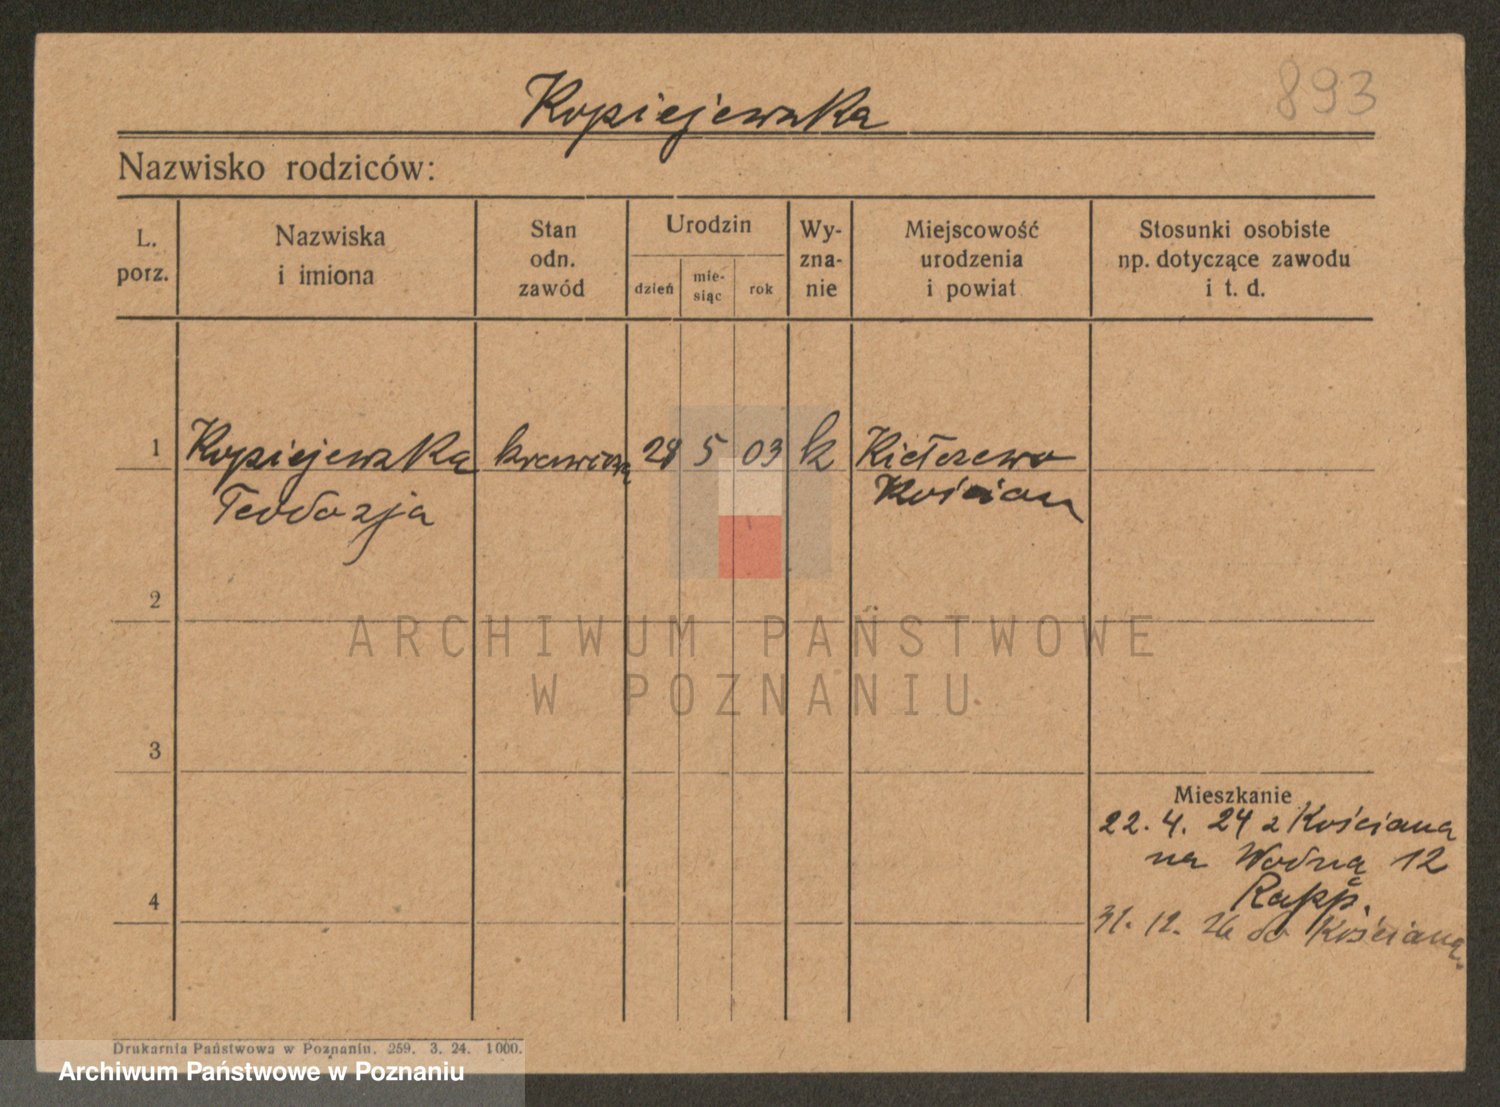 893
Kopiejewska
Nazwisko rodziców:
L. porz.
Nazwiska i imiona
Stan odn. zawód
Urodzin
dzień
mie-
siąc
rok
Wy-
zna-
nie
Miejscowość urodzenia i powiat
Stosunki osobiste
np. dotyczące zawodu
i t. d.
1 Kopiejewska krawcową 28 5 03 k Kiełczewo
Teodozja Kościan
2
ARCHIWUM PAŃSTWOWE
W POZNANIU
3
Mieszkanie
22. 4. 24 z Kościana
na Wodną 12
4 Rapp.
31. 12. 26 do Kościana.
Drukarnia Państwowa w Poznaniu. 259. 3. 24. 1000.
Archiwum Państwowe w Poznaniu